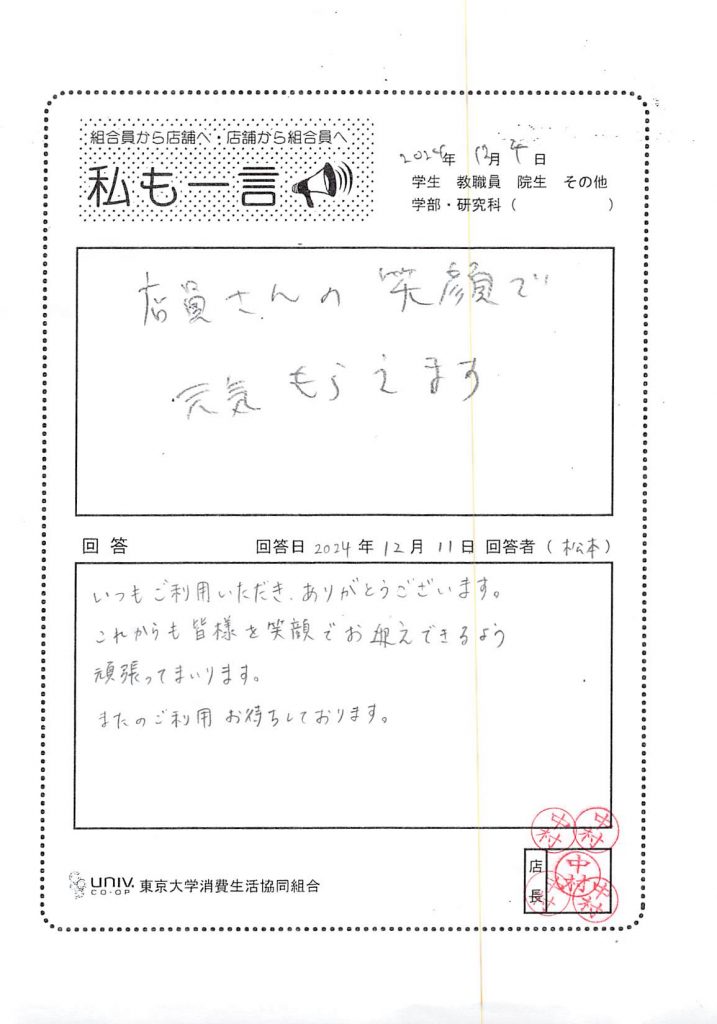 組合員から店舗へ・店舗から組合員へ
私も一言
2024年 12月 4日
学生 教職員 院生 その他
学部・研究科（ ）
店員さんの笑顔で
元気もらえます
回答 回答日 2024年12月11日 回答者（松本）
いつもご利用いただき、ありがとうございます。
これからも皆様を笑顔でお迎えできるよう
頑張ってまいります。
またのご利用お待ちしております。
中村
中村
店長
中村
中村
中村
UNIV. CO-OP 東京大学消費生活協同組合